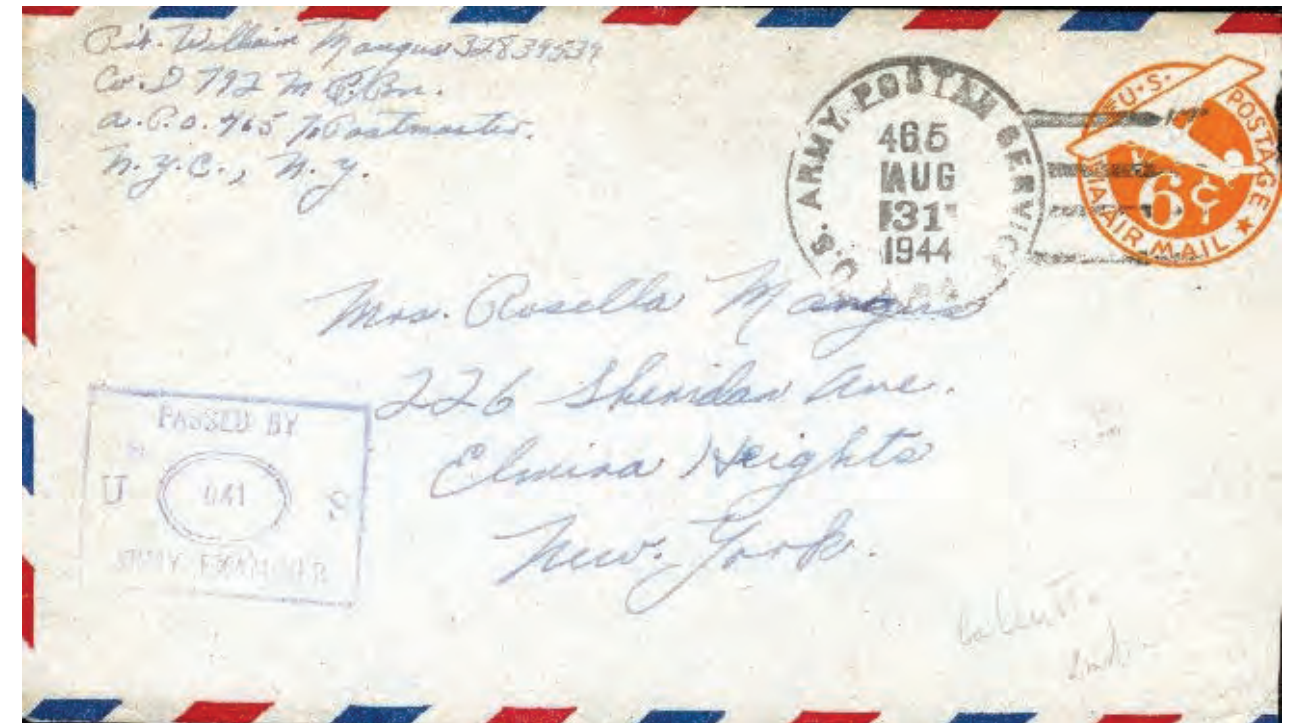 Pvt. William Mangus 32839539
Co. D 792 M.P. Bn.
A.P.O. 465 % Postmaster.
N.Y.C., N.Y.
U.S. ARMY POSTAL SERVICE
465
AUG
31
1944
A.P.O.
U.S. POSTAGE
VIA AIR MAIL
6¢
Mrs. Rosella Mangus
226 Sheridan Ave.
Elmira Heights
New York.
PASSED BY
U S
041
ARMY EXAMINER
Calcutta
India